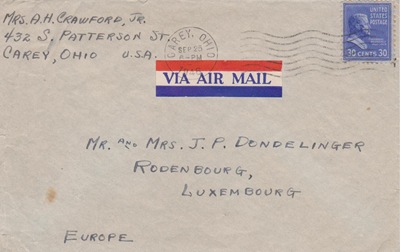 MRS. A.H. CRAWFORD, JR.
432 S. PATTERSON ST.
CAREY, OHIO U.S.A.
CAREY, OHIO
SEP 25
PM
UNITED STATES
POSTAGE
30 CENTS 30
VIA AIR MAIL
MR. AND MRS. J.P. DONDELINGER
RODENBOURG,
LUXEMBOURG
EUROPE